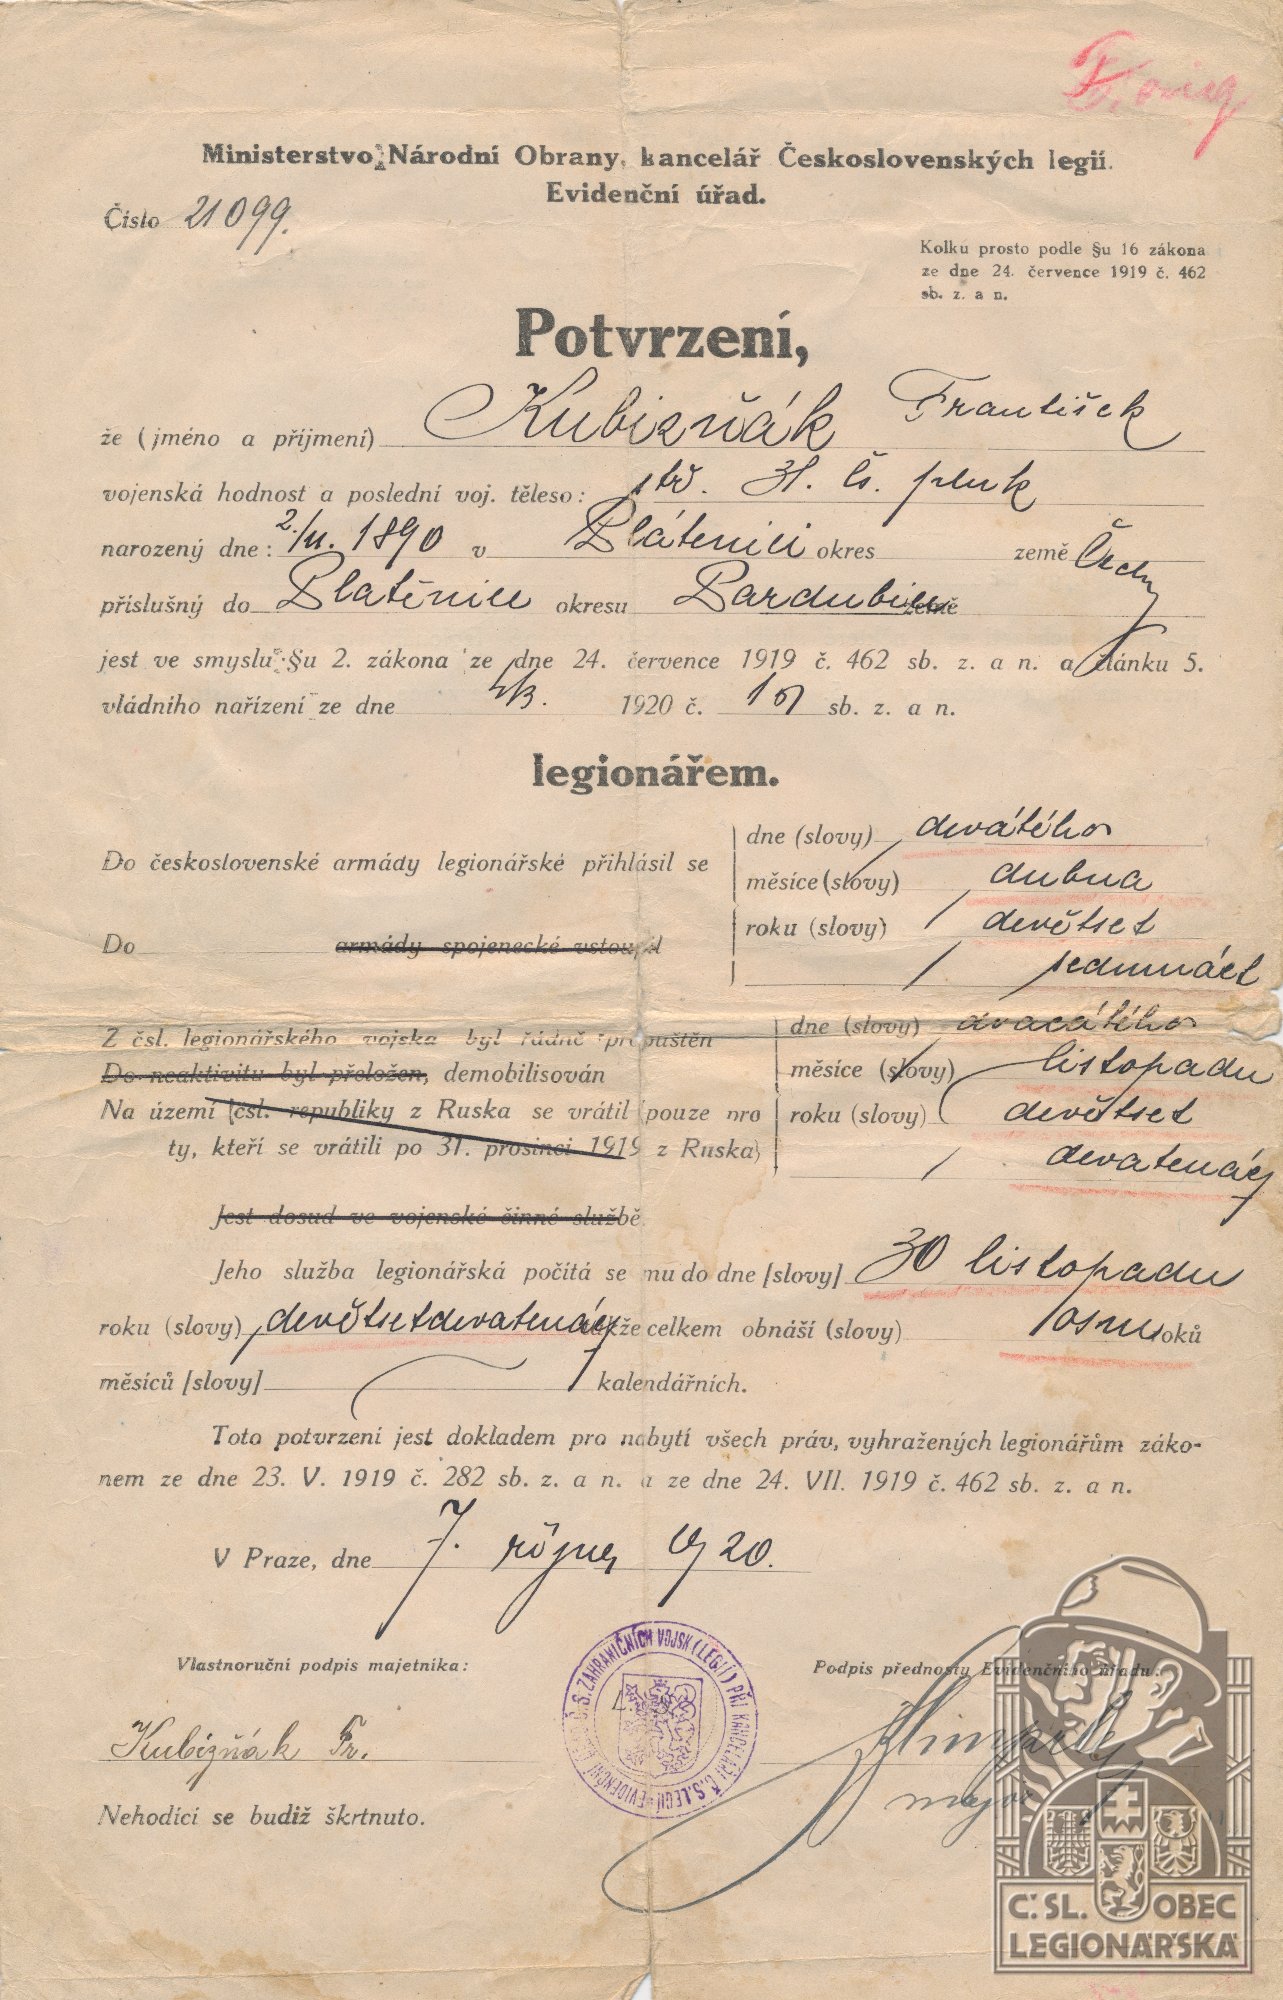 Ministerstvo Národní Obrany, kancelář Československých legií.
Evidenční úřad.
Číslo 21099.
Kolku prosto podle §u 16 zákona
ze dne 24. července 1919 č. 462
sb. z. a n.
Potvrzení,
že (jméno a příjmení) Kubizňák František
vojenská hodnost a poslední voj. těleso: stř. 31. čs. pluk
narozený dne: 2./11. 1890 v Platěnici okres země Čechy
příslušný do Platěnice okresu Pardubice země
jest ve smyslu §u 2. zákona ze dne 24. července 1919 č. 462 sb. z. a n. a článku 5.
vládního nařízení ze dne 4/3. 1920 č. 151 sb. z. a n.
legionářem.
Do československé armády legionářské přihlásil se
dne (slovy) devátého
měsíce (slovy) dubna
Do armády spojenecké vstoupil
roku (slovy) devětset
sedmnáct
Z čsl. legionářského vojska byl řádně propuštěn
dne (slovy) dvacátého
Do neaktivitu byl přeložen, demobilisován
měsíce (slovy) listopadu
Na území čsl. republiky z Ruska se vrátil (pouze pro
roku (slovy) devětset
ty, kteří se vrátili po 31. prosinci 1919 z Ruska)
devatenáct
Jest dosud ve vojenské činné službě.
Jeho služba legionářská počítá se mu do dne [slovy] 30 listopadu
roku (slovy) devětsetdevatenáct takže celkem obnáší (slovy) osm roků
měsíců [slovy] kalendářních.
Toto potvrzení jest dokladem pro nabytí všech práv, vyhražených legionářům záko-
nem ze dne 23. V. 1919 č. 282 sb. z. a n. a ze dne 24. VII. 1919 č. 462 sb. z. a n.
V Praze, dne 7. října 1920.
Vlastnoruční podpis majetníka:
Podpis přednosty Evidenčního úřadu:
Kubizňák Fr.
major
Nehodící se budiž škrtnuto.
Č. S. ZAHRANIČNÍCH VOJSK (LEGIÍ) PŘI KANCELÁŘI Č.S. LEGIÍ - EVIDENČNÍ
Č. SL. OBEC
LEGIONÁŘSKÁ